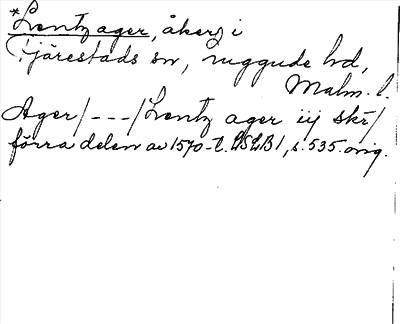 *Lentz ager, åker i
Fjärestads sn, Luggude hd,
Malm. l.
Ager/---/Lentz ager iij skr/
förra delen av 1570-t. LSLB1, s. 535. orig.